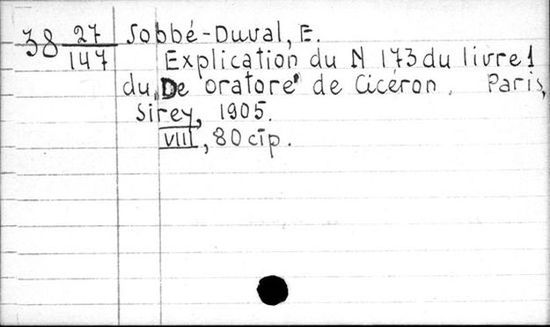 38 27/147 Sobbé-Duval, E.
Explication du N 173 du livre 1
du „De oratore" de Cicéron. Paris,
Sirey, 1905.
VIII, 80 стр.